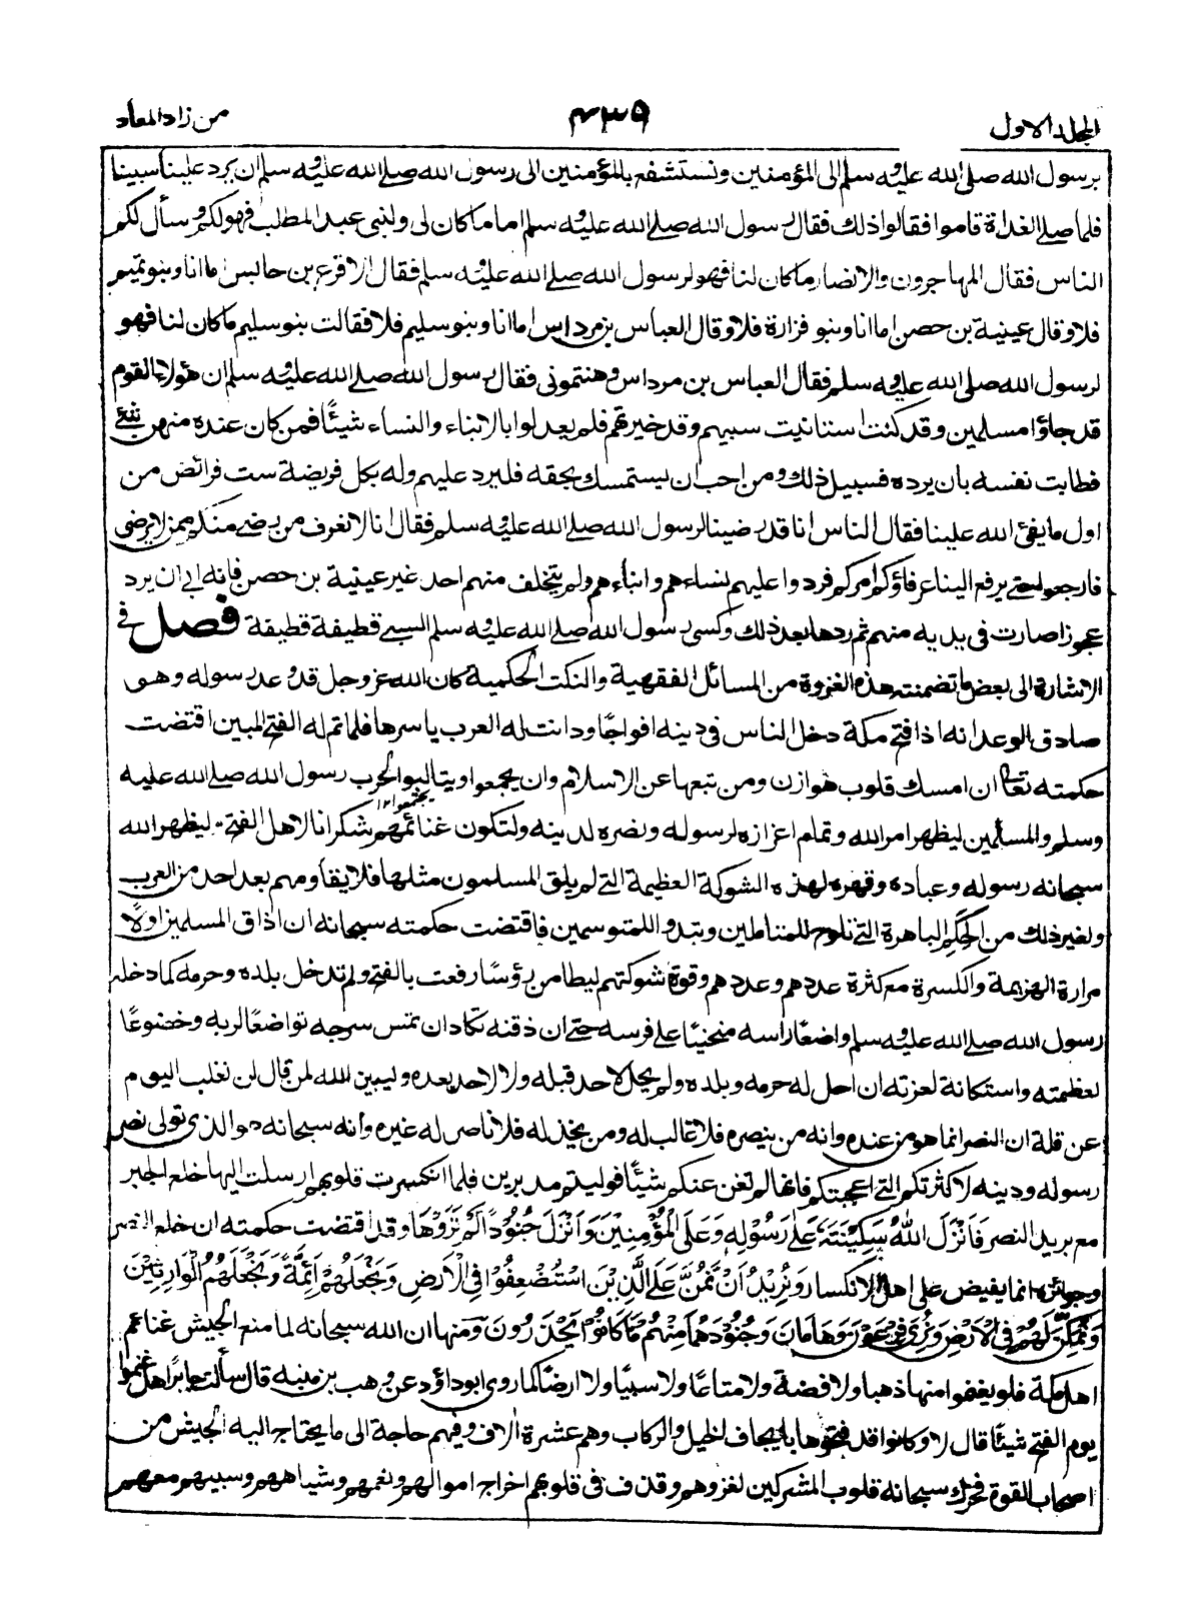 المجلد الاول
٤٣٩
من زاد المعاد
برسول الله صلى الله عليه وسلم الى المؤمنين ونستشفع بالمؤمنين الى رسول الله صلى الله عليه وسلم ان يرد علينا سبينا
فلما صلى الغداة قاموا فقالوا ذلك فقال رسول الله صلى الله عليه وسلم اما ما كان لى ولبنى عبد المطلب فهو لكم وسأل لكم
الناس فقال المهاجرون والانصار ما كان لنا فهو لرسول الله صلى الله عليه وسلم فقال الاقرع بن حابس اما انا وبنو تميم
فلا وقال عيينة بن حصن اما انا وبنو فزارة فلا وقال العباس بن مرداس اما انا وبنو سليم فلا فقالت بنو سليم ما كان لنا فهو
لرسول الله صلى الله عليه وسلم فقال العباس بن مرداس وهنتمونى فقال رسول الله صلى الله عليه وسلم ان هؤلاء القوم
قد جاؤا مسلمين وقد كنت استانيت سبيهم وقد خيرتهم فلم يعدلوا بالابناء والنساء شيئًا فمن كان عنده منهن شئ
فطابت نفسه بان يرده فسبيل ذلك ومن احب ان يستمسك بحقه فليرد عليهم وله بكل فريضة ست فرائض من
اول ما يفئ الله علينا فقال الناس انا قد رضينا لرسول الله صلى الله عليه وسلم فقال انا لا نعرف من رضى منكم ممن لا يرضى
فارجعوا حتى يرفع الينا عرفاؤكم امركم فردوا عليهم نساءهم وابناءهم ولم يتخلف منهم احد غير عيينة بن حصن فانه ابى ان يرد
عجوزا صارت فى يديه منهم ثم ردها بعد ذلك وكسى رسول الله صلى الله عليه وسلم السبى قطيفة قطيفة فصل فى
الاشارة الى بعض ما تضمنته هذه الغزوة من المسائل الفقهية والنكت الحكمية كان الله عز وجل قد وعد رسوله وهو
صادق الوعد انه اذا فتح مكة دخل الناس فى دينه افواجًا ودانت له العرب باسرها فلما تم له الفتح المبين اقتضت
حكمته تعالى ان امسك قلوب هوازن ومن تبعها عن الاسلام وان يجمعوا ويتالبوا لحرب رسول الله صلى الله عليه
وسلم والمسلمين ليظهر امر الله وتمام اعزازه لرسوله ونصره لدينه ولتكون غنائمهم شكرانا لاهل الفتح ليظهر الله
سبحانه رسوله وعباده وقهره لهذه الشوكة العظيمة التى لم يلق المسلمون مثلها فلا يقاومهم بعد احد من العرب
ولغير ذلك من الحكم الباهرة التى تلوح للمتاملين وتبدو للمتوسمين فاقتضت حكمته سبحانه ان اذاق المسلمين اولًا
مرارة الهزيمة والكسرة مع كثرة عددهم وعددهم وقوة شوكتهم ليطامن رؤسًا رفعت بالفتح ولم تدخل بلده وحرمه كما دخله
رسول الله صلى الله عليه وسلم واضعًا راسه منحنيًا على فرسه حتى ان ذقنه تكاد ان تمس سرجه تواضعًا لربه وخضوعًا
لعظمته واستكانة لعزته ان احل له حرمه وبلده ولم يحل لاحد قبله ولا لاحد بعده وليبين الله لمن قال لن نغلب اليوم
عن قلة ان النصر انما هو من عنده وانه من ينصره فلا غالب له ومن يخذله فلا ناصر له غيره وأنه سبحانه هو الذى تولى نصر
رسوله ودينه لا كثرتكم التى اعجبتكم فانها لم تغن عنكم شيئًا فوليتم مدبرين فلما انكسرت قلوبهم ارسلت اليها خلع الجبر
مع بريد النصر فَاَنْزَلَ اللّٰهُ سَكِيْنَتَهٗ عَلٰى رَسُوْلِهٖ وَعَلَى الْمُؤْمِنِيْنَ وَاَنْزَلَ جُنُوْدًا لَّمْ تَرَوْهَا وقد اقتضت حكمته ان خلع النصر
وجوائزه انما يفيض على اهل الانكسار وَنُرِيْدُ اَنْ نَّمُنَّ عَلَى الَّذِيْنَ اسْتُضْعِفُوْا فِى الْاَرْضِ وَنَجْعَلَهُمْ اَئِمَّةً وَّنَجْعَلَهُمُ الْوَارِثِيْنَ
وَنُمَكِّنَ لَهُمْ فِى الْاَرْضِ وَنُرِىَ فِرْعَوْنَ وَهَامَانَ وَجُنُوْدَهُمَا مِنْهُمْ مَّا كَانُوْا يَحْذَرُوْنَ ومنها ان الله سبحانه لما منع الجيش غنائم
اهل مكة فلم يغنموا منها ذهبا ولا فضة ولا متاعًا ولا سبيًا ولا ارضًا كما روى ابو داؤد عن وهب بن منبه قال سألت جابرًا هل غنموا
يوم الفتح شيئًا قال لا وكانوا قد فتحوها بايجاف الخيل والركاب وهم عشرة الاف وفيهم حاجة الى ما يحتاج اليه الجيش من
اصحاب القوة فحرك سبحانه قلوب المشركين لغزوهم وقذف فى قلوبهم اخراج اموالهم ونعمهم وشياههم وسبيهم معهم